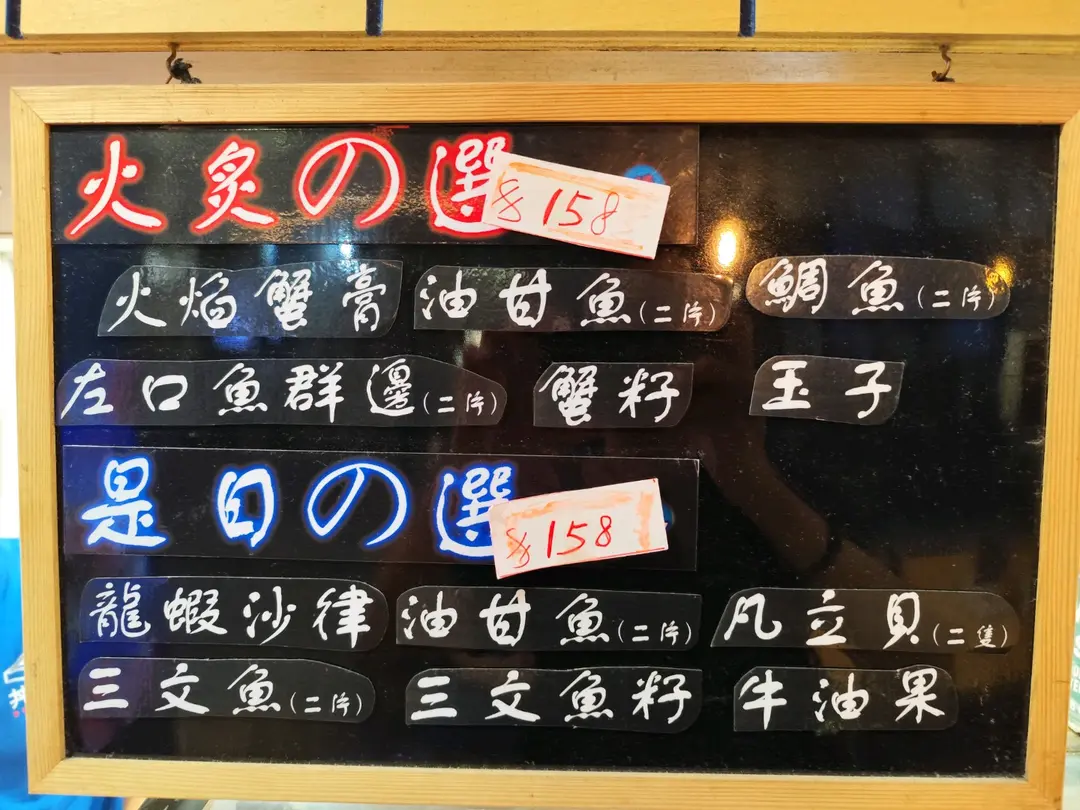 火炙の選 $158
火焰蟹膏 油甘魚(二片) 鯛魚(二片)
左口魚群邊(二片) 蟹籽 玉子
是日の選 $158
龍蝦沙律 油甘魚(二片) 凡立貝(二隻)
三文魚(二片) 三文魚籽 牛油果